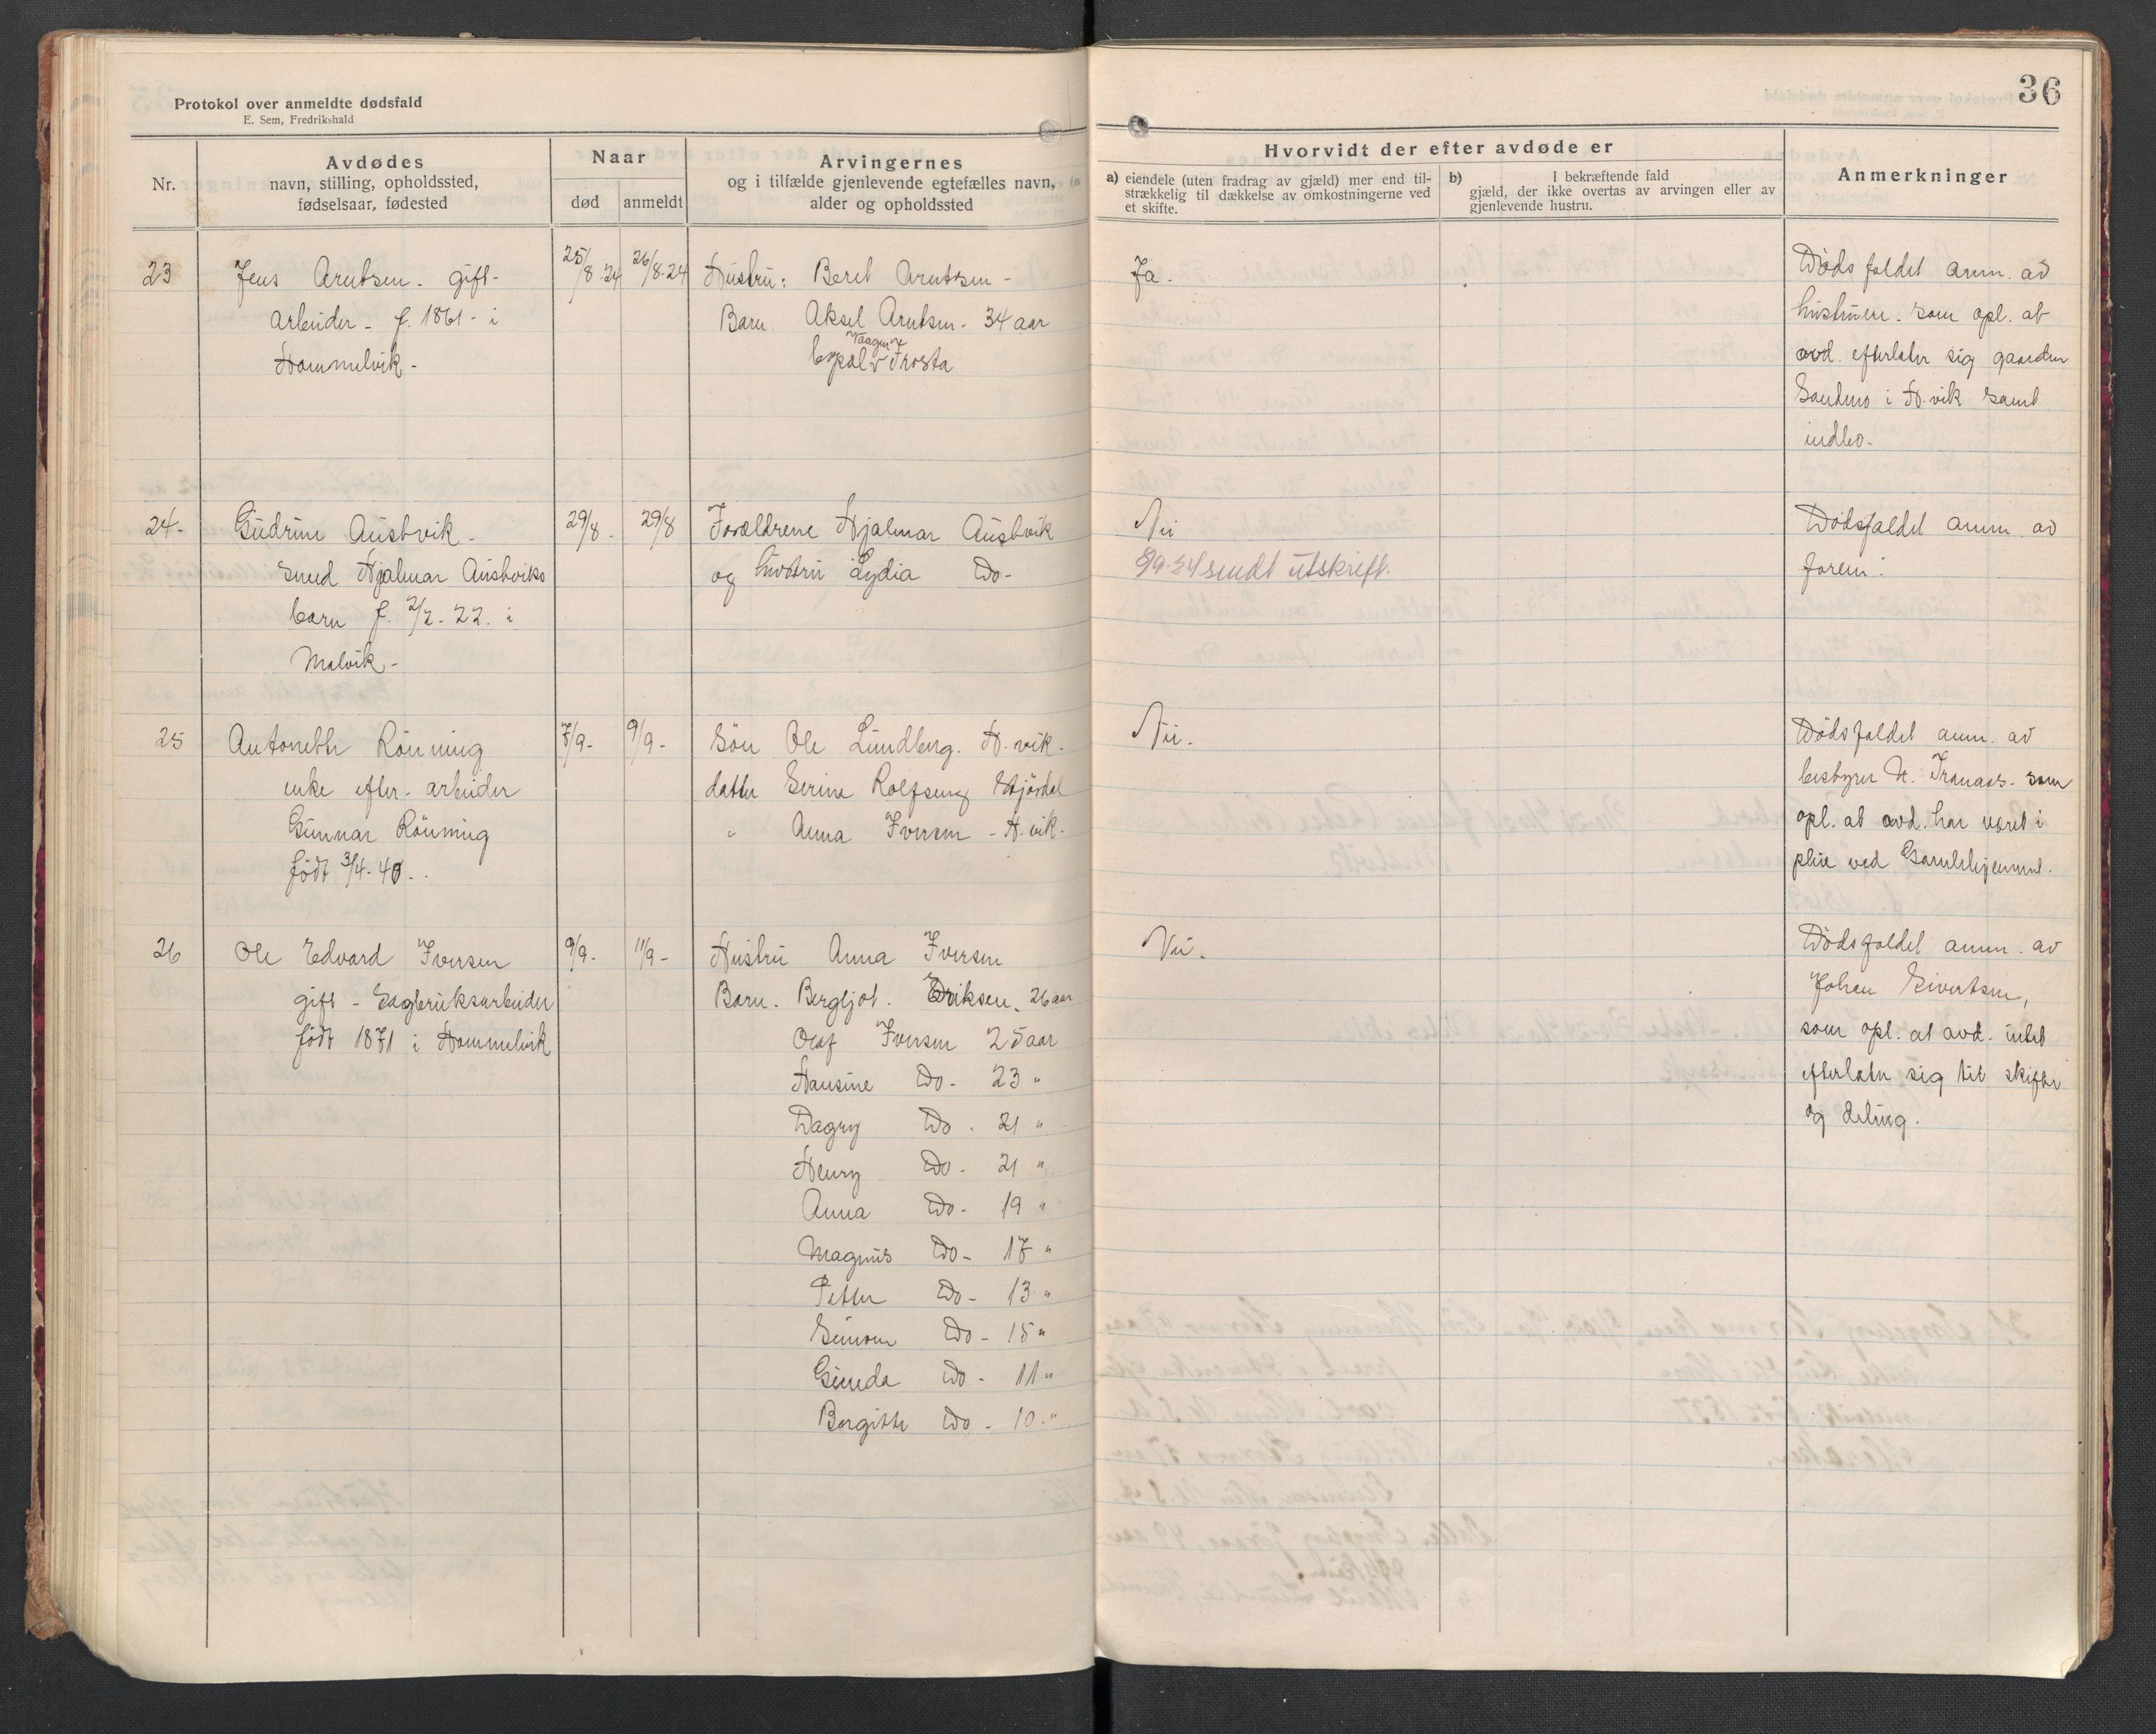 Protokol over anmeldte dødsfald
E. Sem, Fredrikshald
36
Nr.
Avdødes
navn, stilling, opholdssted,
fødselsaar, fødested
Naar
død
anmeldt
Arvingernes
og i tilfælde gjenlevende egtefælles navn,
alder og opholdssted
Hvorvidt der efter avdøde er
a) eiendele (uten fradrag av gjæld) mer end til-
strækkelig til dækkelse av omkostningerne ved
et skifte.
b) I bekræftende fald
gjæld, der ikke overtas av arvingen eller av
gjenlevende hustru.
Anmerkninger
23
Jens Arntsen. gift-
arbeider - f. 1861 - i
Hommelvik -
25/8-24
26/8-24
Hustru: Beret Arntsen -
Barn Aksel Arntsen - 34 aar
Frosta
Ja.
Dødsfaldet anm. av
hustruen. som opl. at
avd. efterlater sig gaarden
i H.vik samt
indbo -
24-
Gudrun Austvik -
Smed Hjalmar Austviks
barn f. 2/2-22. i
Malvik -
29/8-
29/8
Forældrene Hjalmar Austvik
og hustru Lydia Do-
Nei
9/9-24 sendt utskrift.
Dødsfaldet anm. av
faren.
25
Antonette Rönning
enke efter - arbeider
Gunnar Rönning
født 3/4-40 -
7/9-
9/9-
Sön Ole Lundberg. H.vik.
datter Serine Rolfseng Stjördal
" Anna Iversen - H.vik.
Nei.
Dødsfaldet anm. av
bestyrer N. Tranaas - som
opl. at avd. har været i
pleie ved Gamlehjemmet.
26
Ole Edvard Iversen
gift - Sagbruksarbeider
født 1871 i Hommelvik
9/9-
11/9-
Hustru Anna Iversen
Barn. Bergljot. Eriksen. 26 aar
Olaf Iversen 25 aar
Hansine Do- 23 "
Dagny Do. 21 "
Henry Do- 21 "
Anna Do- 19 "
Magnus Do- 17 "
Petter Do- 13 "
Simon Do- 15 "
Gunda Do- 11 "
Bergitte Do- 10 "
Nei.
Dødsfaldet anm. av
Johan Sivertsen,
som opl. at avd. intet
efterlater sig til skifte
og deling.